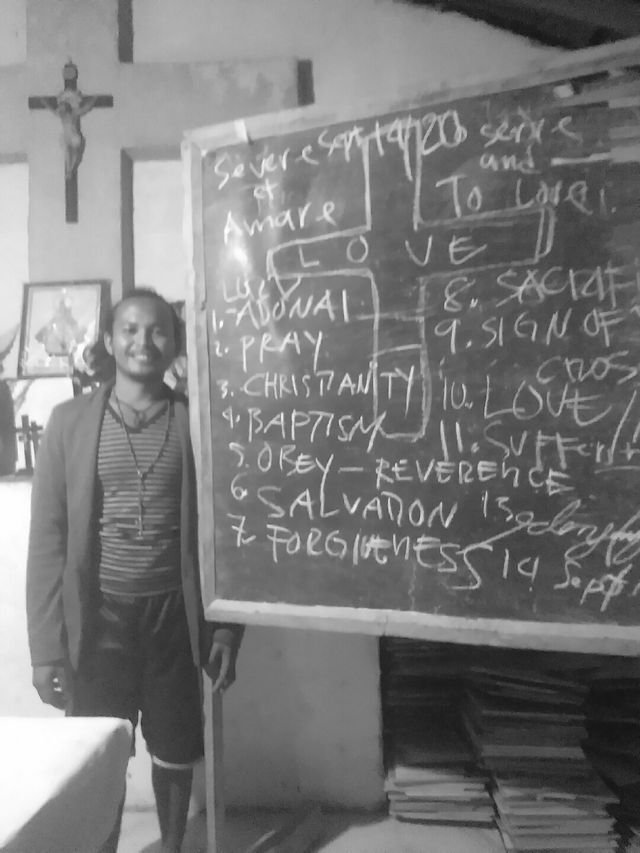 Severe Sept 14/20 serve
et and
Amare To Love
LOVE
1. ADONAI
2. PRAY
3. CHRISTIANITY
4. BAPTISM
5. OBEY — REVERENCE
6. SALVATION
7. FORGIVENESS
8. SACRIF
9. SIGN OF
CROSS
10. LOVE
11. SUFFER
13.
14 Sept